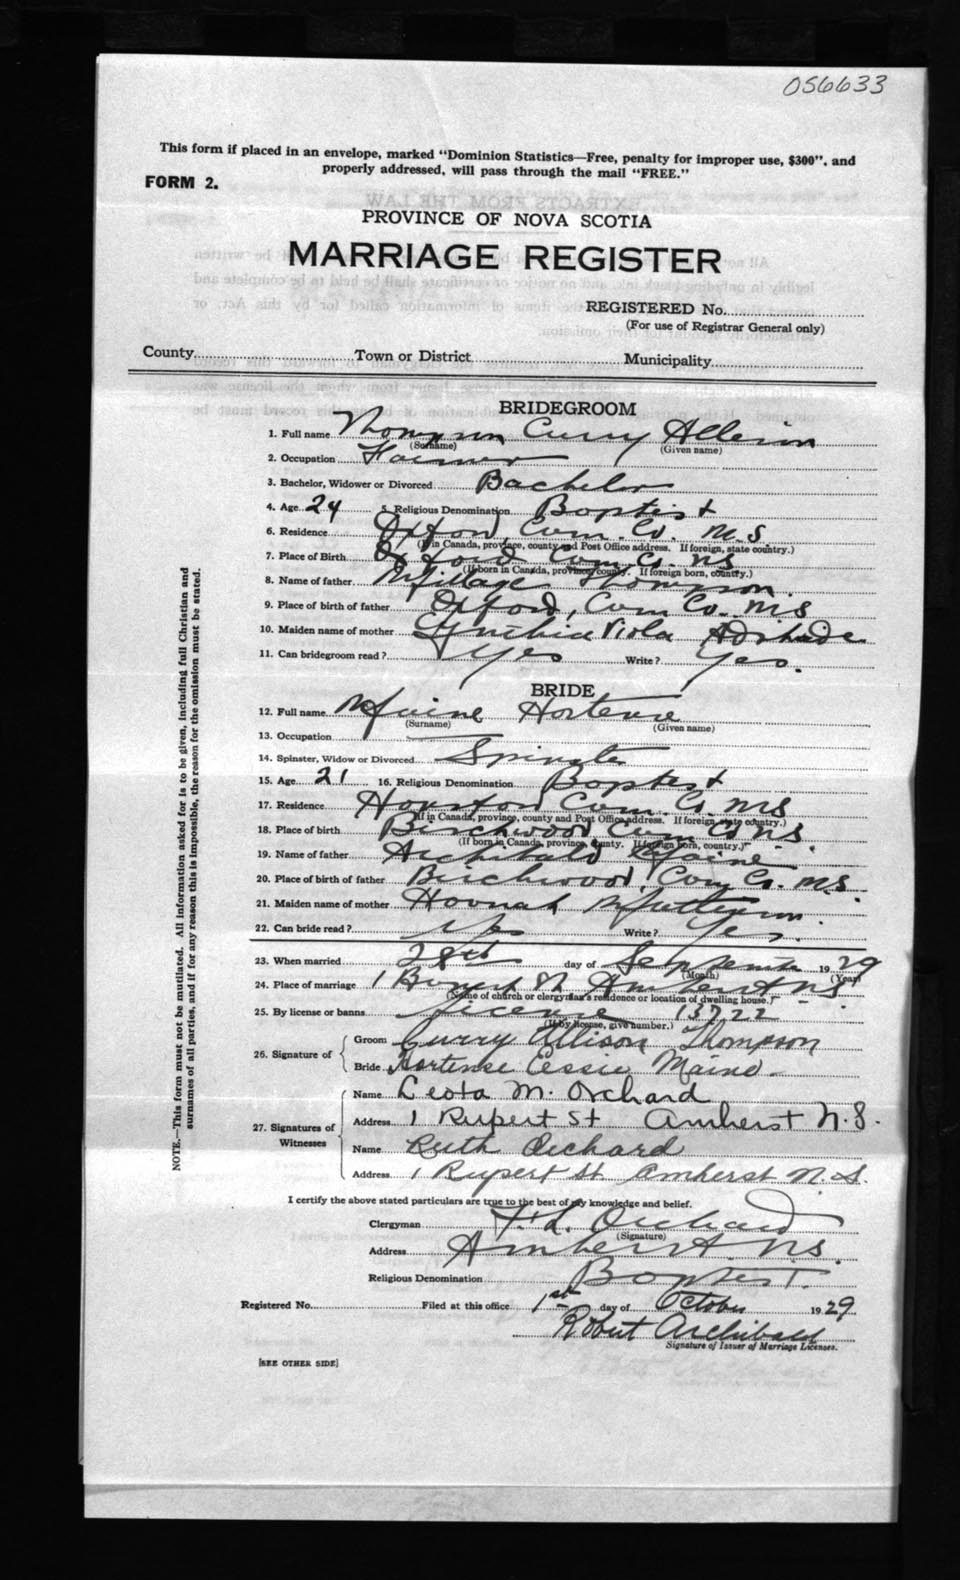 056633
This form if placed in an envelope, marked "Dominion Statistics—Free, penalty for improper use, $300", and
properly addressed, will pass through the mail "FREE."
FORM 2.
PROVINCE OF NOVA SCOTIA
MARRIAGE REGISTER
REGISTERED No.
(For use of Registrar General only)
County Town or District Municipality
BRIDEGROOM
1. Full name Thompson Curry Allison
(Surname) (Given name)
2. Occupation Farmer
3. Bachelor, Widower or Divorced Bachelor
4. Age 24 5. Religious Denomination Baptist
6. Residence Oxford, Cum. Co. N.S.
(If in Canada, province, county and Post Office address. If foreign, state country.)
7. Place of Birth Oxford Cum. Co. N.S.
(If born in Canada, province, county. If foreign born, country.)
8. Name of father Thompson
9. Place of birth of father Oxford, Cum Co. N.S
10. Maiden name of mother Cynthia Viola
11. Can bridegroom read? Yes Write? Yes.
BRIDE
12. Full name Hortense
(Surname) (Given name)
13. Occupation
14. Spinster, Widow or Divorced Spinster
15. Age 21 16. Religious Denomination Baptist
17. Residence Cum. Co. N.S
(If in Canada, province, county and Post Office address. If foreign, state country.)
18. Place of birth Birchwood Cum Co N.S.
(If born in Canada, province, county. If foreign born, country.)
19. Name of father Archibald
20. Place of birth of father Birchwood, Cum Co. N.S.
21. Maiden name of mother Hannah
22. Can bride read? Yes Write? Yes.
23. When married 28th day of September 1929
(Month) (Year)
24. Place of marriage 1 Rupert St Amherst N.S.
(Name of church or clergyman's residence or location of dwelling house.)
25. By license or banns License 13722
(If by license, give number.)
26. Signature of Groom Curry Allison Thompson
Bride Hortense Essie Maine
27. Signatures of Witnesses Name Leota M. Orchard
Address 1 Rupert St Amherst N.S.
Name Ruth Orchard
Address 1 Rupert St. Amherst N.S.
I certify the above stated particulars are true to the best of my knowledge and belief.
Clergyman F. L. Orchard
(Signature)
Address Amherst. N.S.
Religious Denomination Baptist.
Registered No. Filed at this office 1st day of October 1929
Robert Archibald
Signature of Issuer of Marriage Licenses.
[SEE OTHER SIDE]
NOTE.—This form must not be mutilated. All information asked for is to be given, including full Christian and
surnames of all parties, and if for any reason this is impossible, the reason for the omission must be stated.